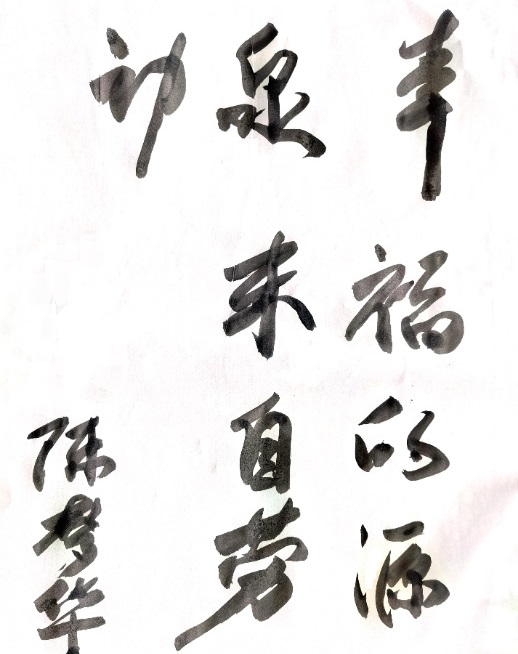 幸福的源
泉来自劳
动
陈梦华